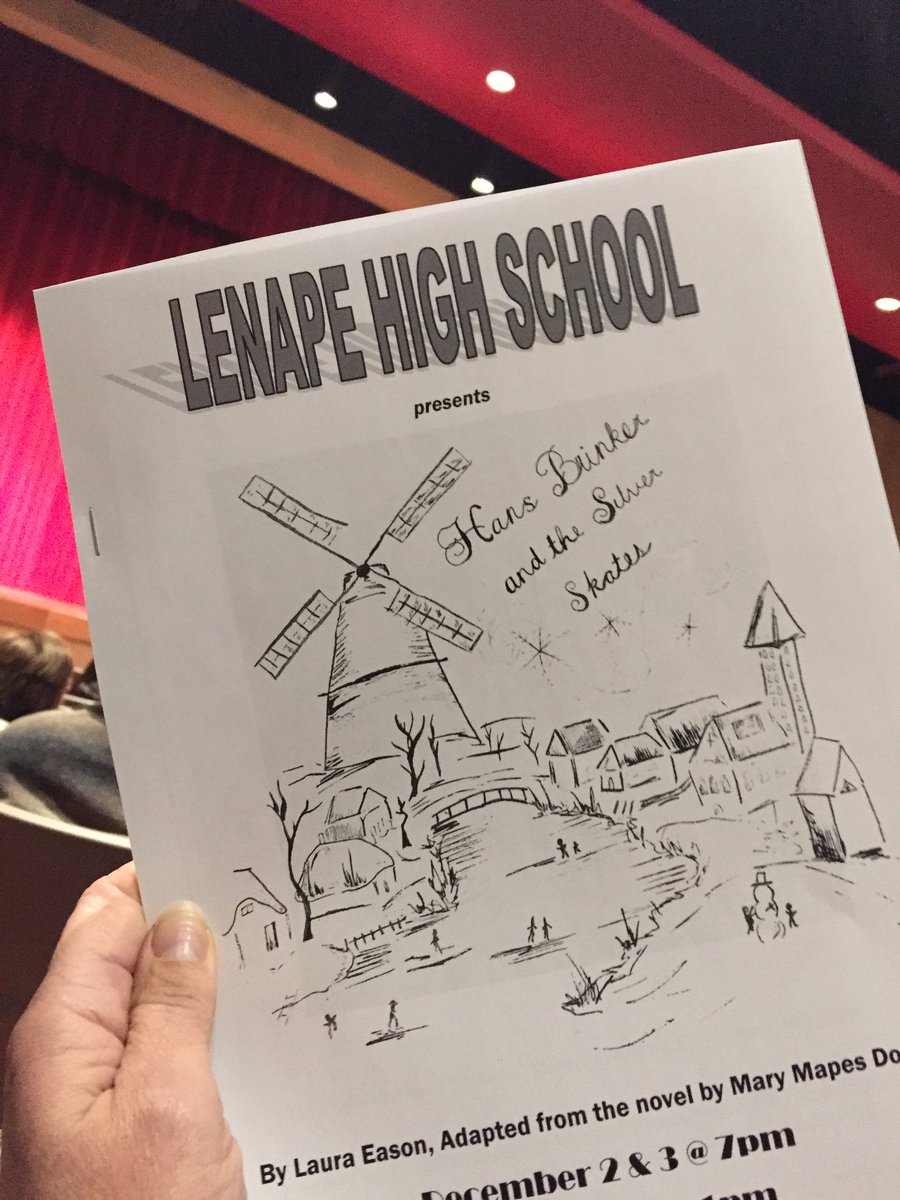 LENAPE HIGH SCHOOL
presents
Hans Brinker
and the Silver
Skates
By Laura Eason, Adapted from the novel by Mary Mapes Do
December 2 & 3 @ 7pm